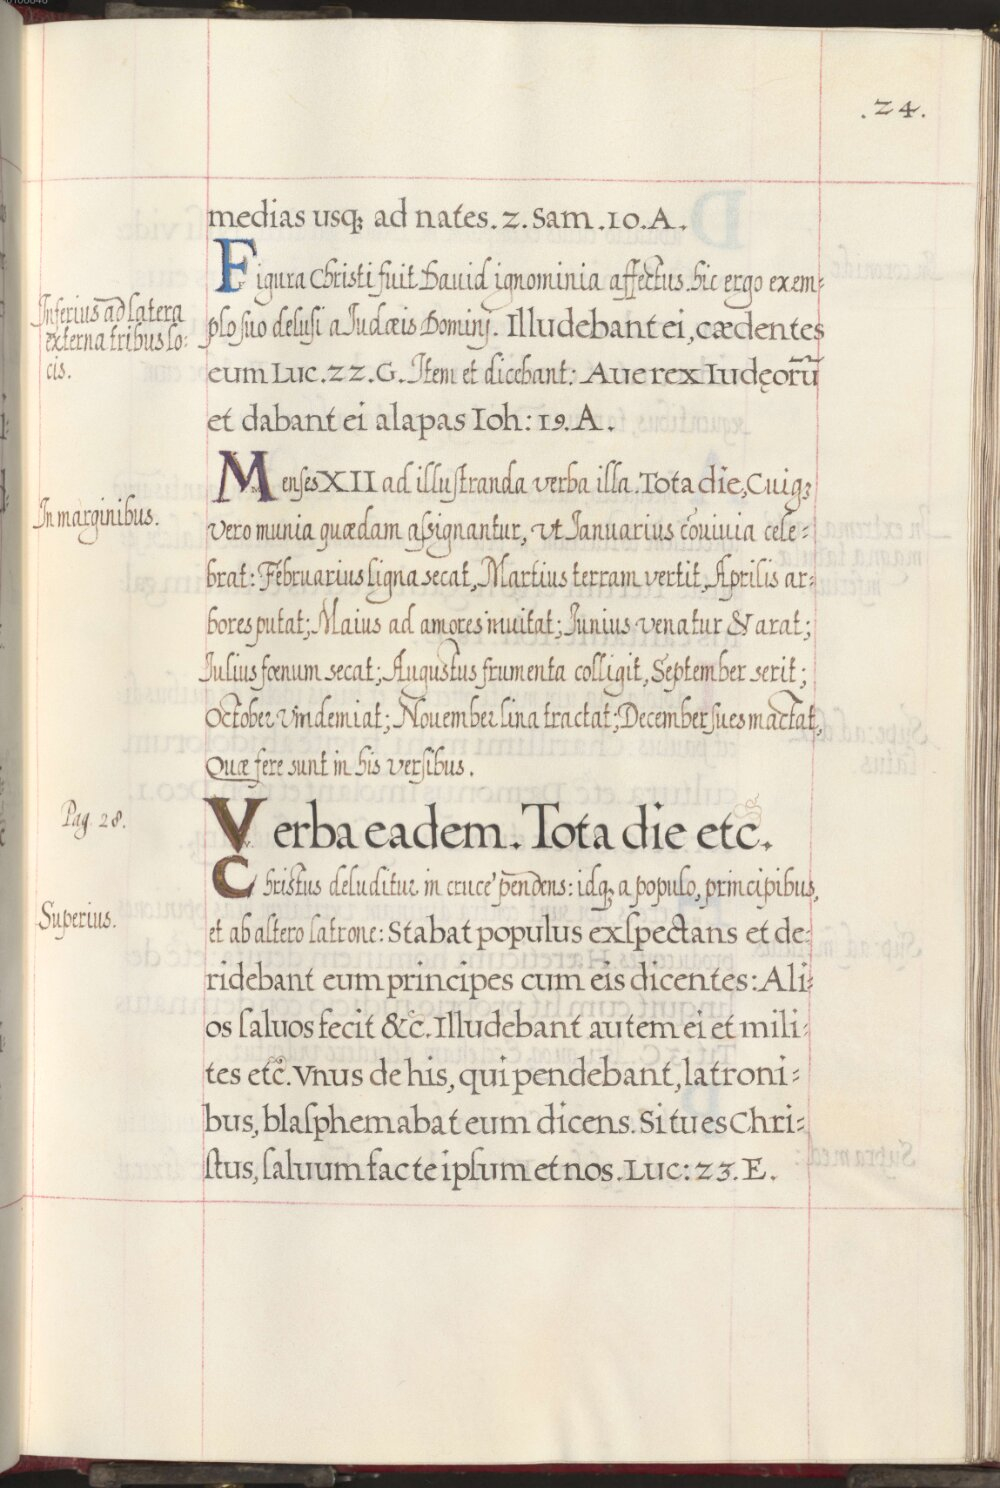 .24.
medias usq; ad nates. 2. Sam. 10. A.
Figura Christi fuit David ignominia affectus. hic ergo exem=
Inferius ad latera
externa tribus lo=
cis.
plo suo delusi a Iudæis Dominj. Illudebant ei, cædentes
eum Luc. 22. G. Item et dicebant: Aue rex Iudęorū
et dabant ei alapas Ioh: 19. A.
Menses XII ad illustranda verba illa. Tota die, Cuiq;
In marginibus.
vero munia quædam assignantur, vt Ianuarius cōuiuia cele=
brat: Februarius ligna secat, Martius terram vertit, Aprilis ar=
bores putat; Maius ad amores inuitat; Iunius venatur & arat;
Iulius fœnum secat; Augustus frumenta colligit, September serit;
October vindemiat; Nouember lina tractat; December sues mactat,
Quæ fere sunt in his versibus.
Pag. 28.
Verba eadem. Tota die etc.
Christus deluditur in cruce pendens: idq; a populo, principibus,
Superius.
et ab altero latrone: Stabat populus exspectans et de=
ridebant eum principes cum eis dicentes: Ali=
os saluos fecit &c. Illudebant autem ei et mili=
tes etc. Vnus de his, qui pendebant, latroni=
bus, blasphemabat eum dicens. Si tu es Chri=
stus, saluum fac te ipsum et nos. Luc: 23. E.